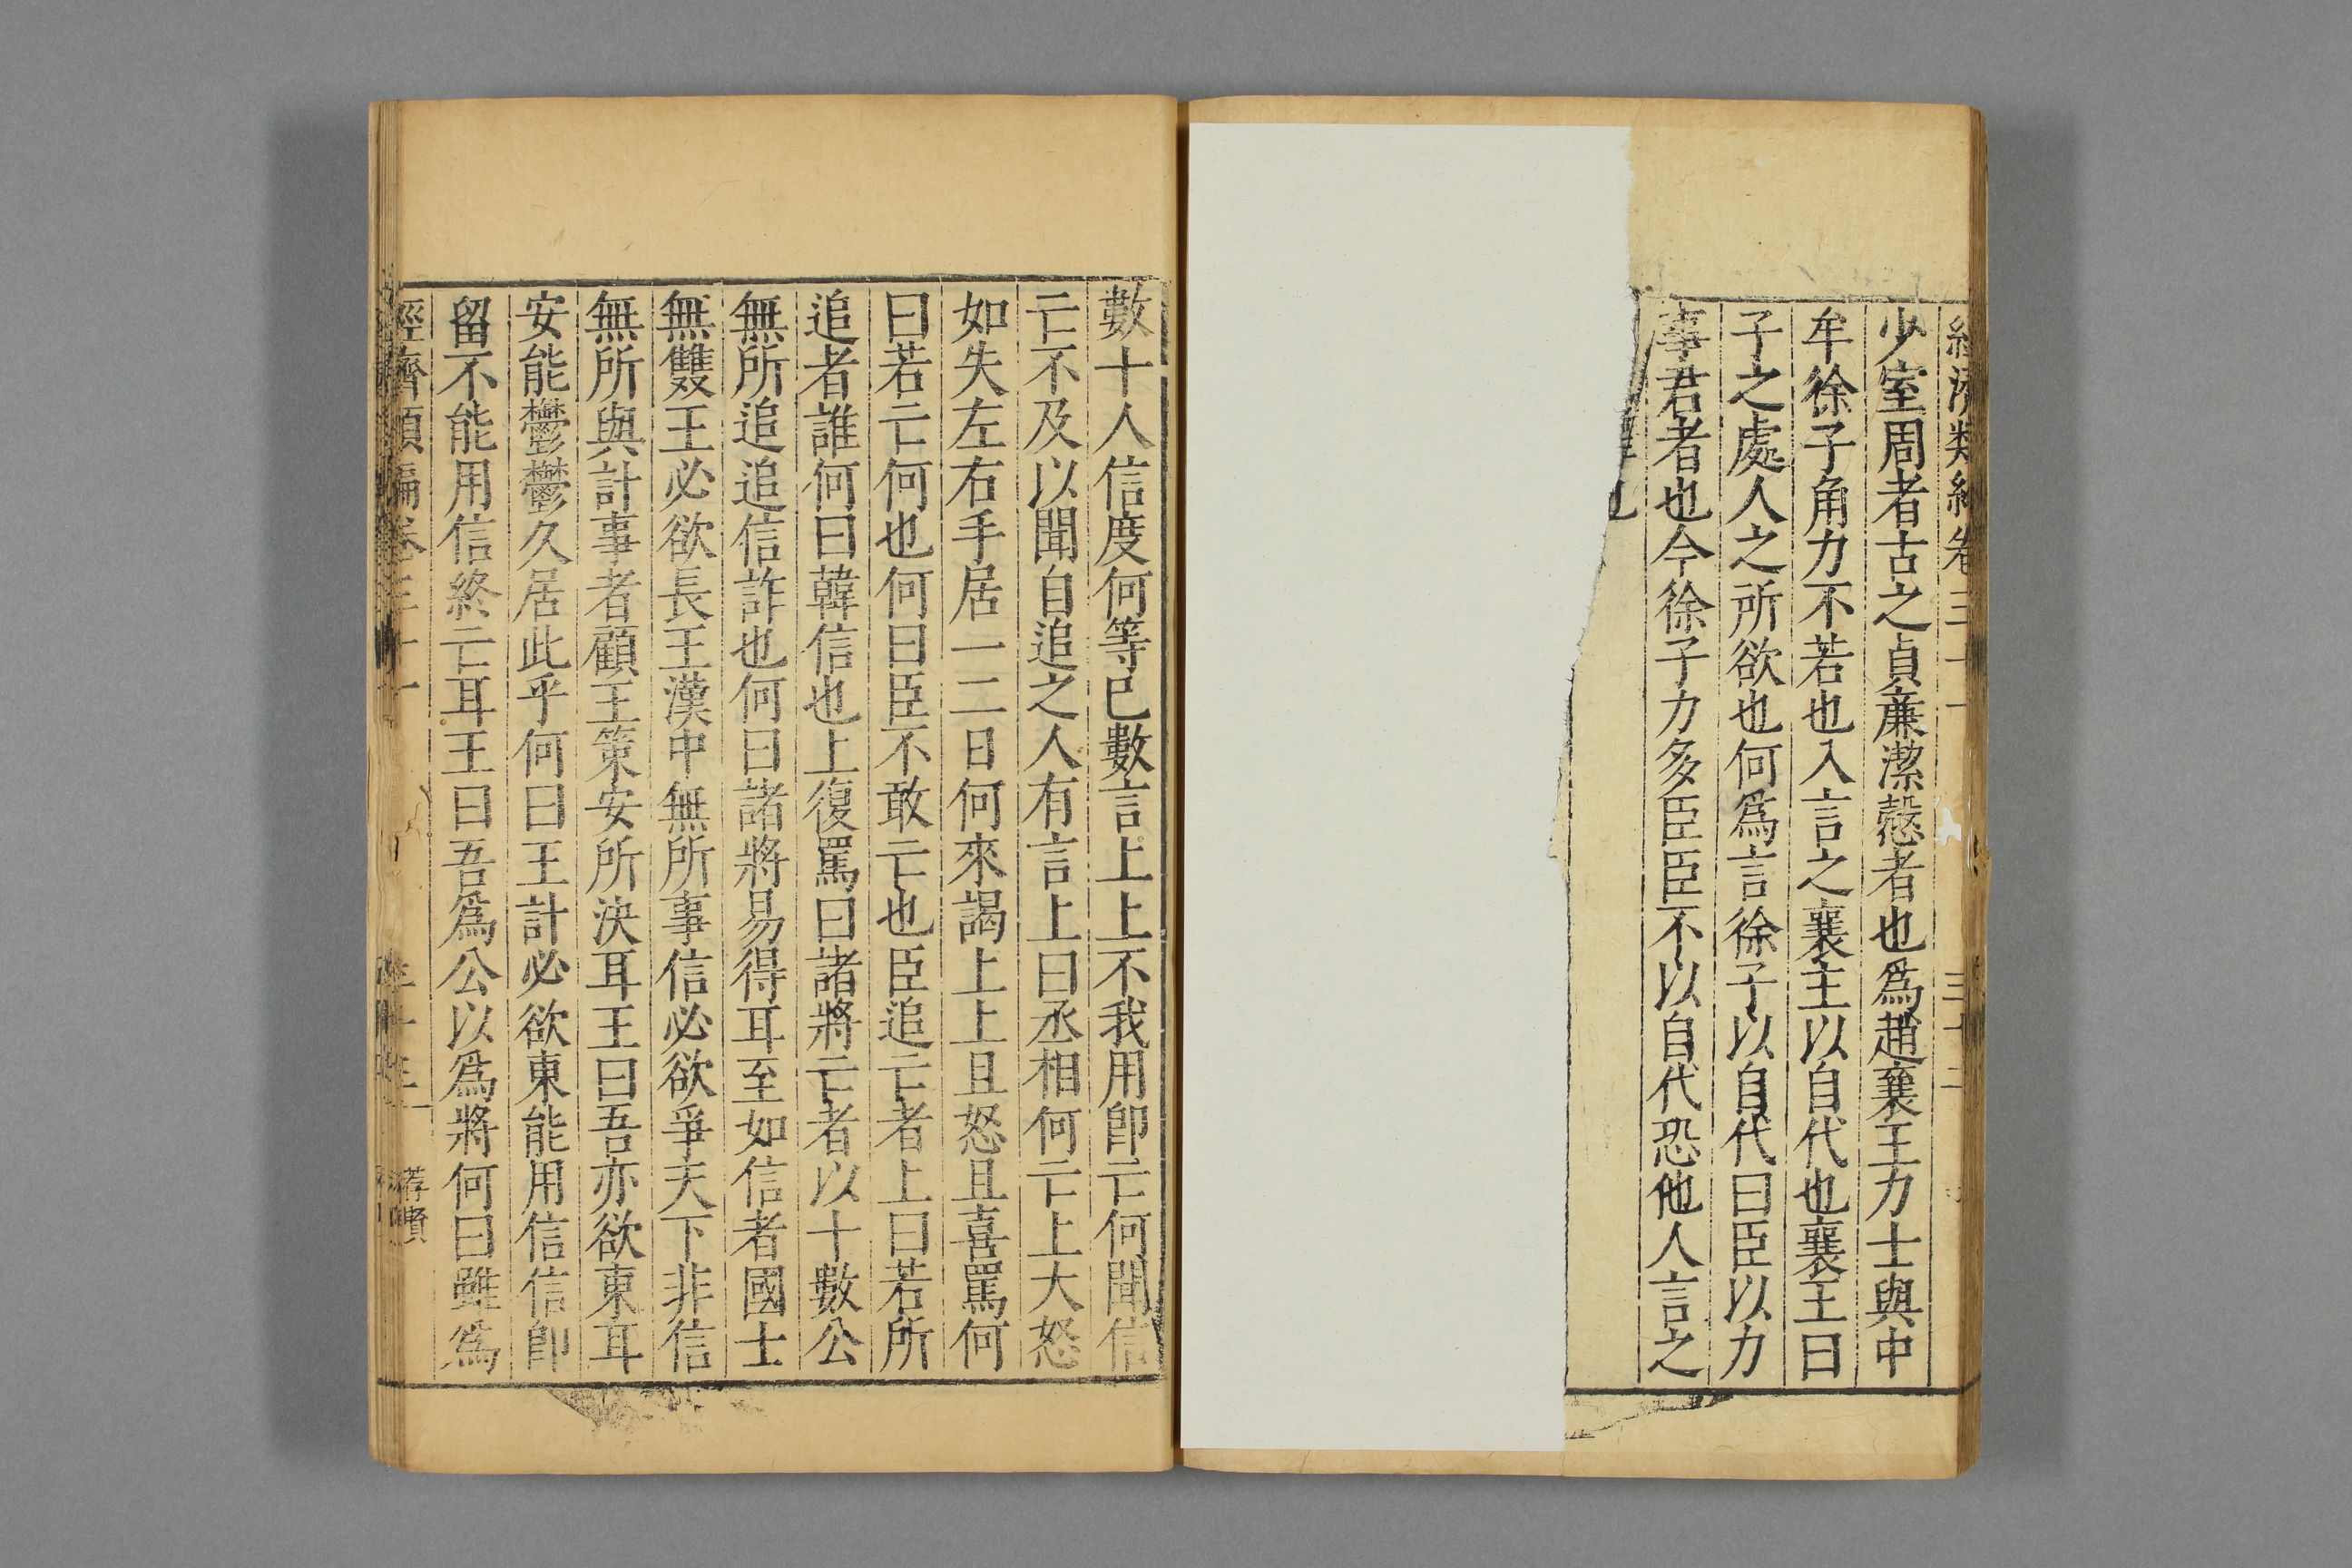 少室周者古之貞廉潔慤者也爲趙襄王力士與中
牟徐子角力不若也入言之襄主以自代也襄王曰
子之處人之所欲也何爲言徐子以自代曰臣以力
事君者也今徐子力多臣臣不以自代恐他人言之
數十人信度何等已數言上上不我用卽亡何聞信
亡不及以聞自追之人有言上曰丞相何亡上大怒
如失左右手居一二日何來謁上上且怒且喜罵何
曰若亡何也何曰臣不敢亡也臣追亡者上曰若所
追者誰何曰韓信也上復罵曰諸將亡者以十數公
無所追追信詐也何曰諸將易得耳至如信者國士
無雙王必欲長王漢中無所事信必欲爭天下非信
無所與計事者顧王策安所決耳王曰吾亦欲東耳
安能鬱鬱久居此乎何曰王計必欲東能用信信卽
留不能用信終亡耳王曰吾爲公以爲將何曰雖爲
經濟類編卷三十一
荐賢